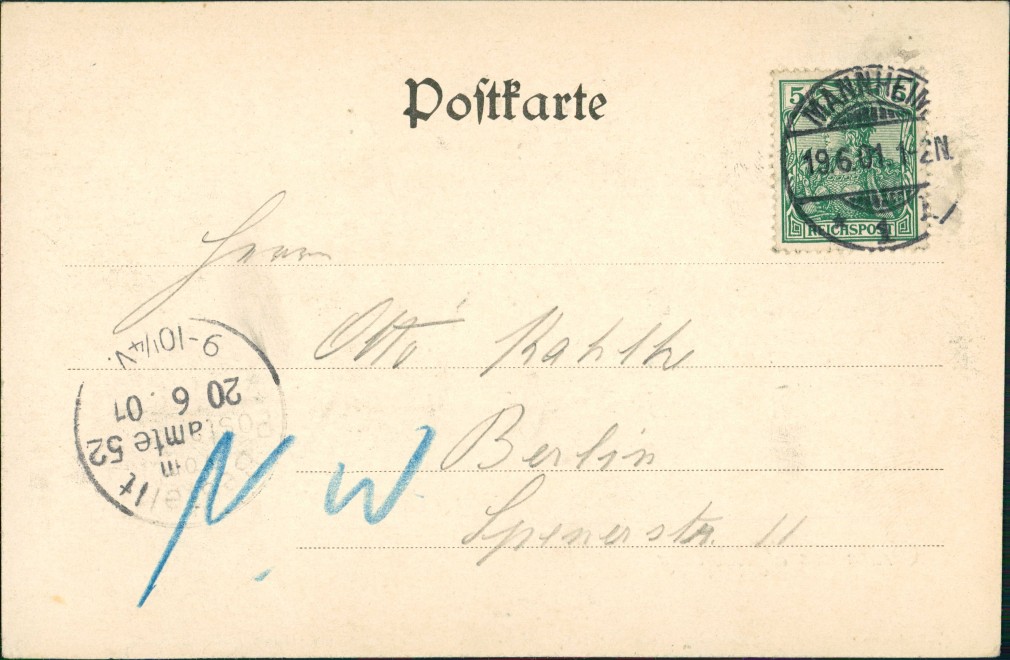 Poſtkarte
5
MANNHEIM
19.6.01. 1-2N.
* 1
REICHSPOST
Herrn
Otto Kahlke
Berlin
Spenerstr. 11
N. W
9-10¼V.
20 6. 01
amte 52
m